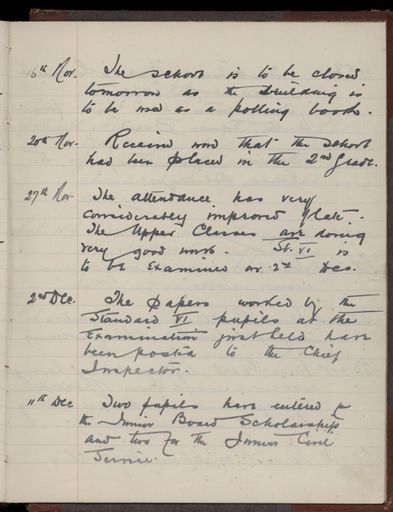 16th Nov. The school is to be closed
tomorrow as the building is
to be used as a polling booth.
20th Nov. Received word that the school
had been placed in the 2nd Grade.
27th Nov. The attendance has very
considerably improved of late.
The Upper Classes are doing
very good work. St. VI is
to be Examined on 2nd Dec.
2nd Dec. The papers worked by the
Standard VI pupils at the
Examination just held have
been posted to the Chief
Inspector.
11th Dec Two pupils have entered for
the Junior Board Scholarships
and two for the Junior Civil
Service.